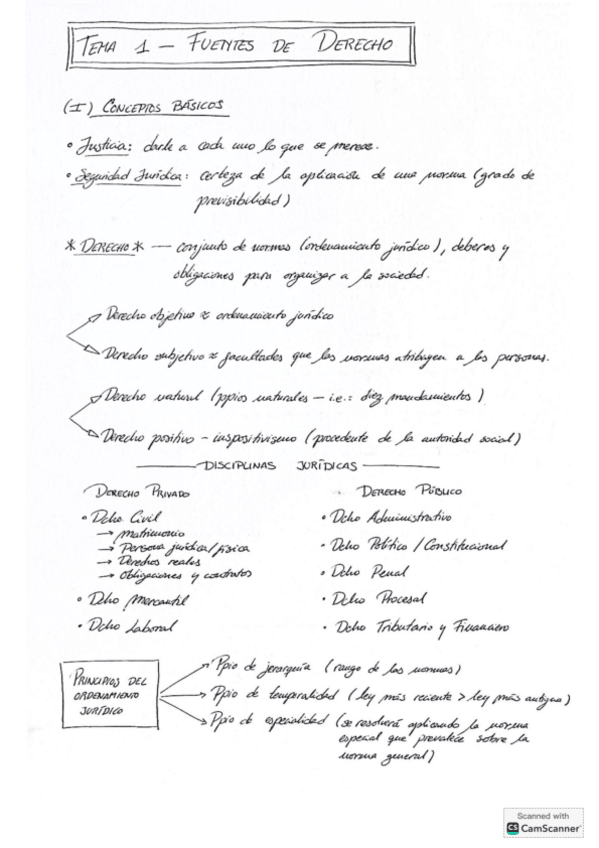 TEMA 1 — FUENTES DE DERECHO
(I) CONCEPTOS BÁSICOS
• Justicia: darle a cada uno lo que se merece.
• Seguridad Jurídica: certeza de la aplicación de una norma (grado de
previsibilidad)
* DERECHO * — conjunto de normas (ordenamiento jurídico), deberes y
obligaciones para organizar a la sociedad.
Derecho objetivo ≈ ordenamiento jurídico
Derecho subjetivo ≈ facultades que las normas atribuyen a las personas.
Derecho natural (ppios naturales — i.e.: diez mandamientos)
Derecho positivo – iuspositivismo (procedente de la autoridad social)
DISCIPLINAS JURÍDICAS
DERECHO PRIVADO
• Dcho Civil
→ Matrimonio
→ Persona jurídica/física
→ Derechos reales
→ Obligaciones y contratos
• Dcho Mercantil
• Dcho Laboral
DERECHO PÚBLICO
• Dcho Administrativo
• Dcho Político / Constitucional
• Dcho Penal
• Dcho Procesal
• Dcho Tributario y Financiero
PRINCIPIOS DEL
ORDENAMIENTO
JURÍDICO
Ppio de jerarquía (rango de las normas)
Ppio de temporalidad (ley más reciente > ley más antigua)
Ppio de especialidad (se resolverá aplicando la norma
especial que prevalece sobre la
norma general)
Scanned with
CS CamScanner